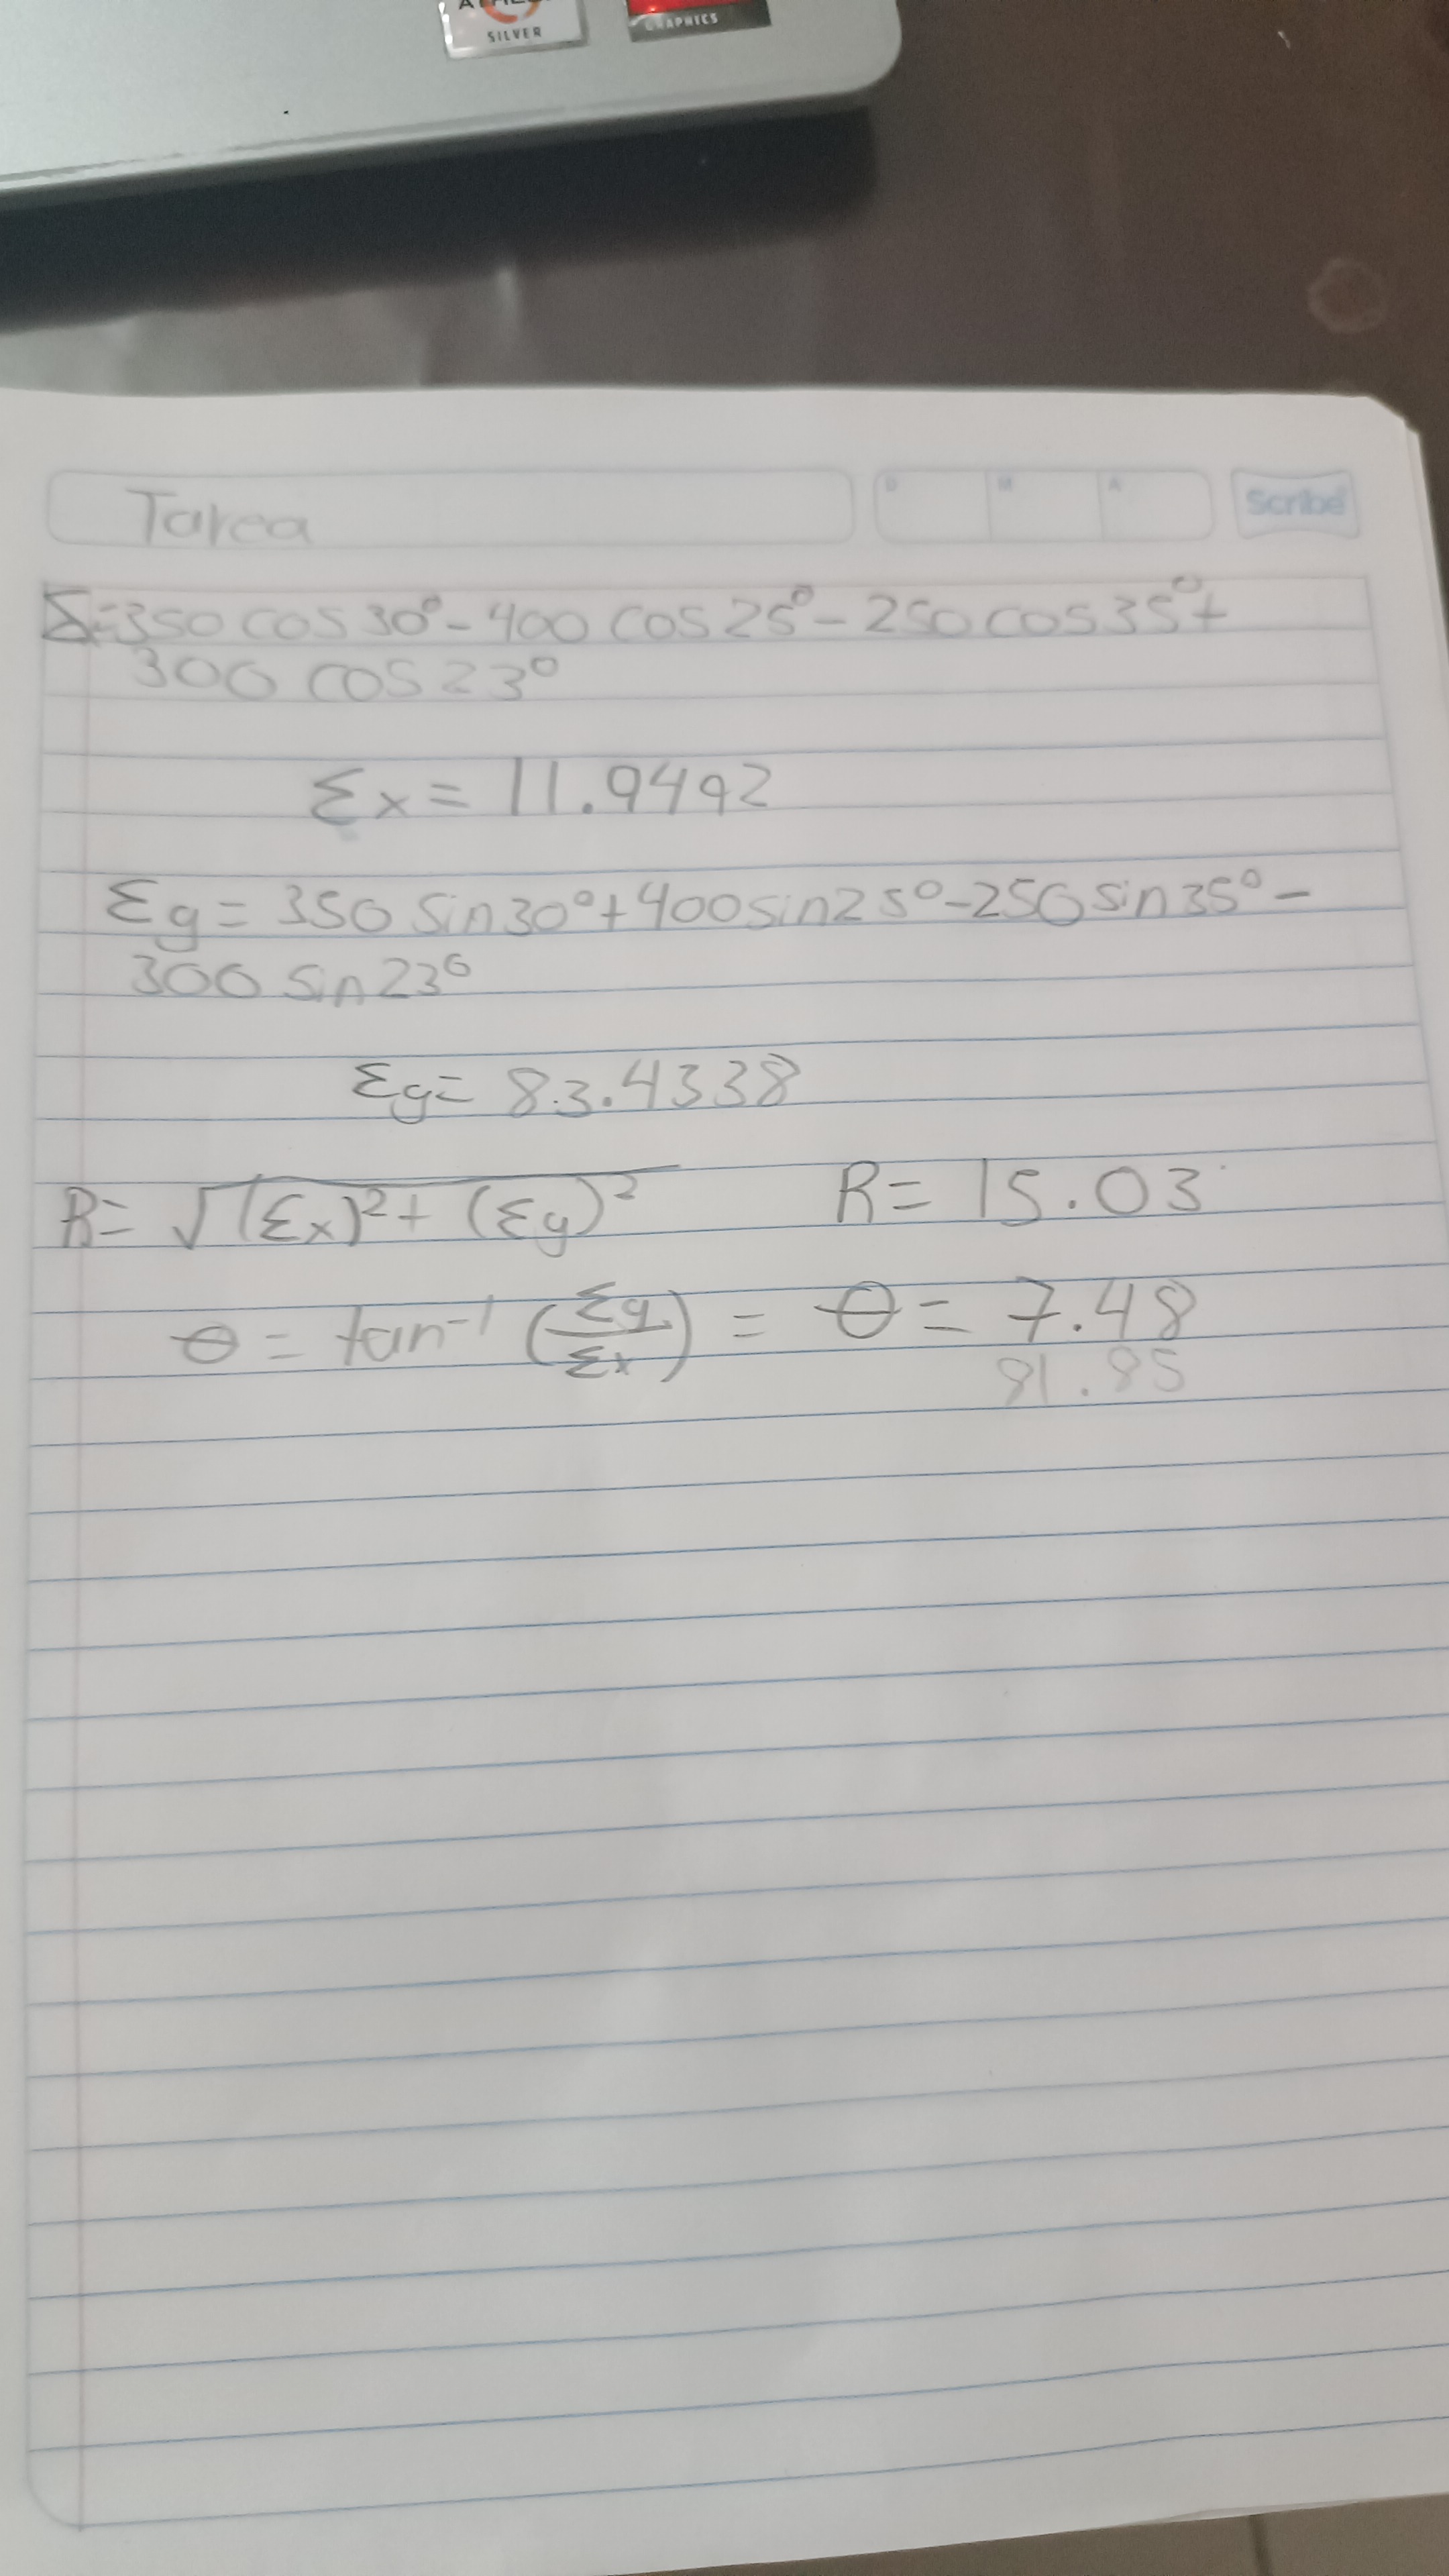 SILVER
GRAPHICS
Tarea
D M A
Scribe
Σ=350 cos 30° - 400 cos 25° - 250 cos 35° +
300 cos 23°
Σx = 11.9492
Σy = 350 sin 30° + 400 sin 25° - 250 sin 35° -
300 sin 23°
Σy = 83.4338
R = √(Σx)² + (Σy)² R = 15.03
θ = tan⁻¹ (Σy/Σx) = θ = 7.48
81.85